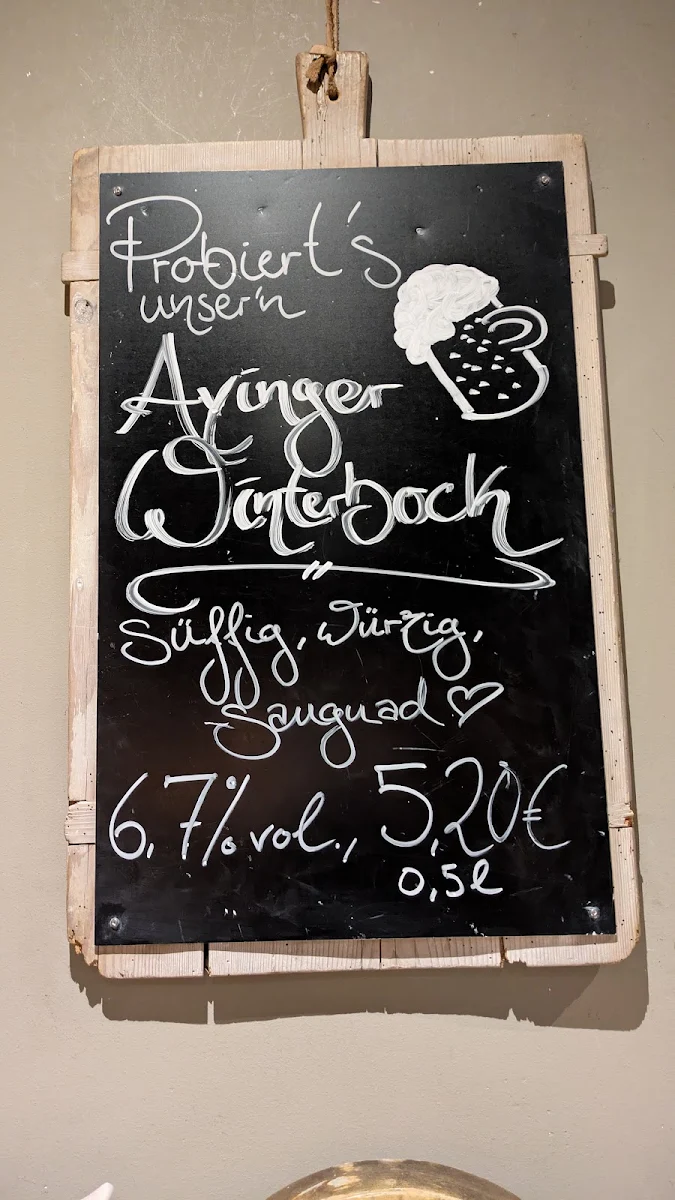 Probiert's
unser'n
Ayinger
Winterbock
Süffig, Würzig,
Sauguad
6,7% vol., 5,20€
0,5l